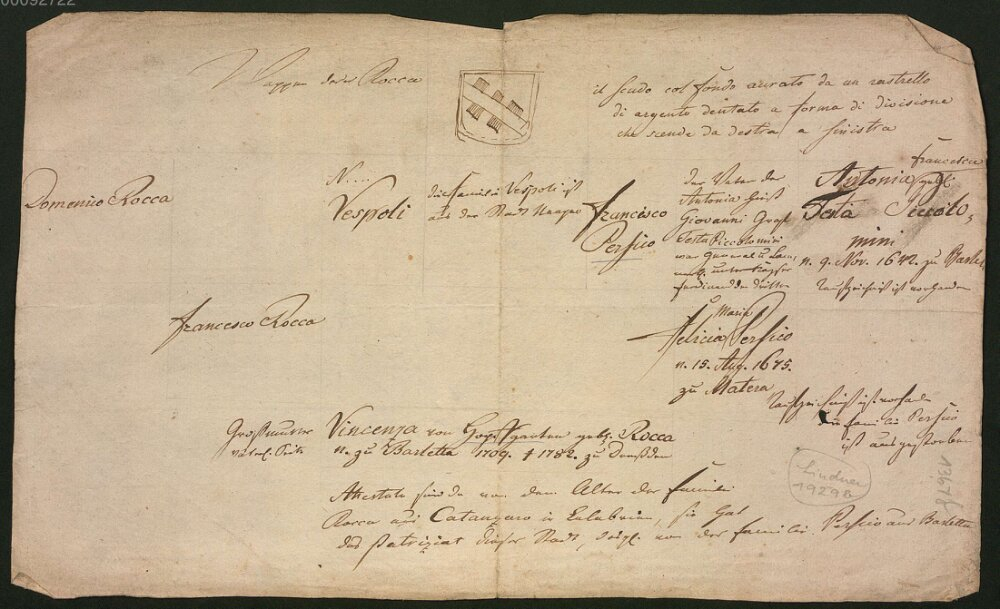 00092722
Wappen derer Rocca
il scudo col fondo aurato da un rastrello
di argento dentato a forma di divisione
che scende da destra a sinistra
Domenico Rocca
N....
Vespoli
die Familie Vespoli ist
aus der Stadt Neapel
Francisco
Persico
der Vater der
Antonia hieß
Giovanni Graf
Testa Piccolomini
war General u.
unter Kayser
Ferdinand den Dritten
Francesca
Antonia
Testa Piccolo,
mini
n. 9. Nov. 1642. zu Barletta
Taufzeugniß ist vorhanden
Francesco Rocca
Maria
Felicia Persico
n. 15. Aug. 1675.
zu Matera
Taufzeugniß ist vorhanden
die Familie Persico
ist ausgestorben
Großmutter
väterl. Seite
Vincenza von Hopffgarten geb. Rocca
n. zu Barletta 1709. † 1782. zu Dresden
Attestate sind da von dem Alter der Familie
Rocca aus Catanzaro in Calabrien, sie hat
das Patriziat dieser Stadt, desgl. von der Familie Persico aus Barletta
Lindner
19298
13678